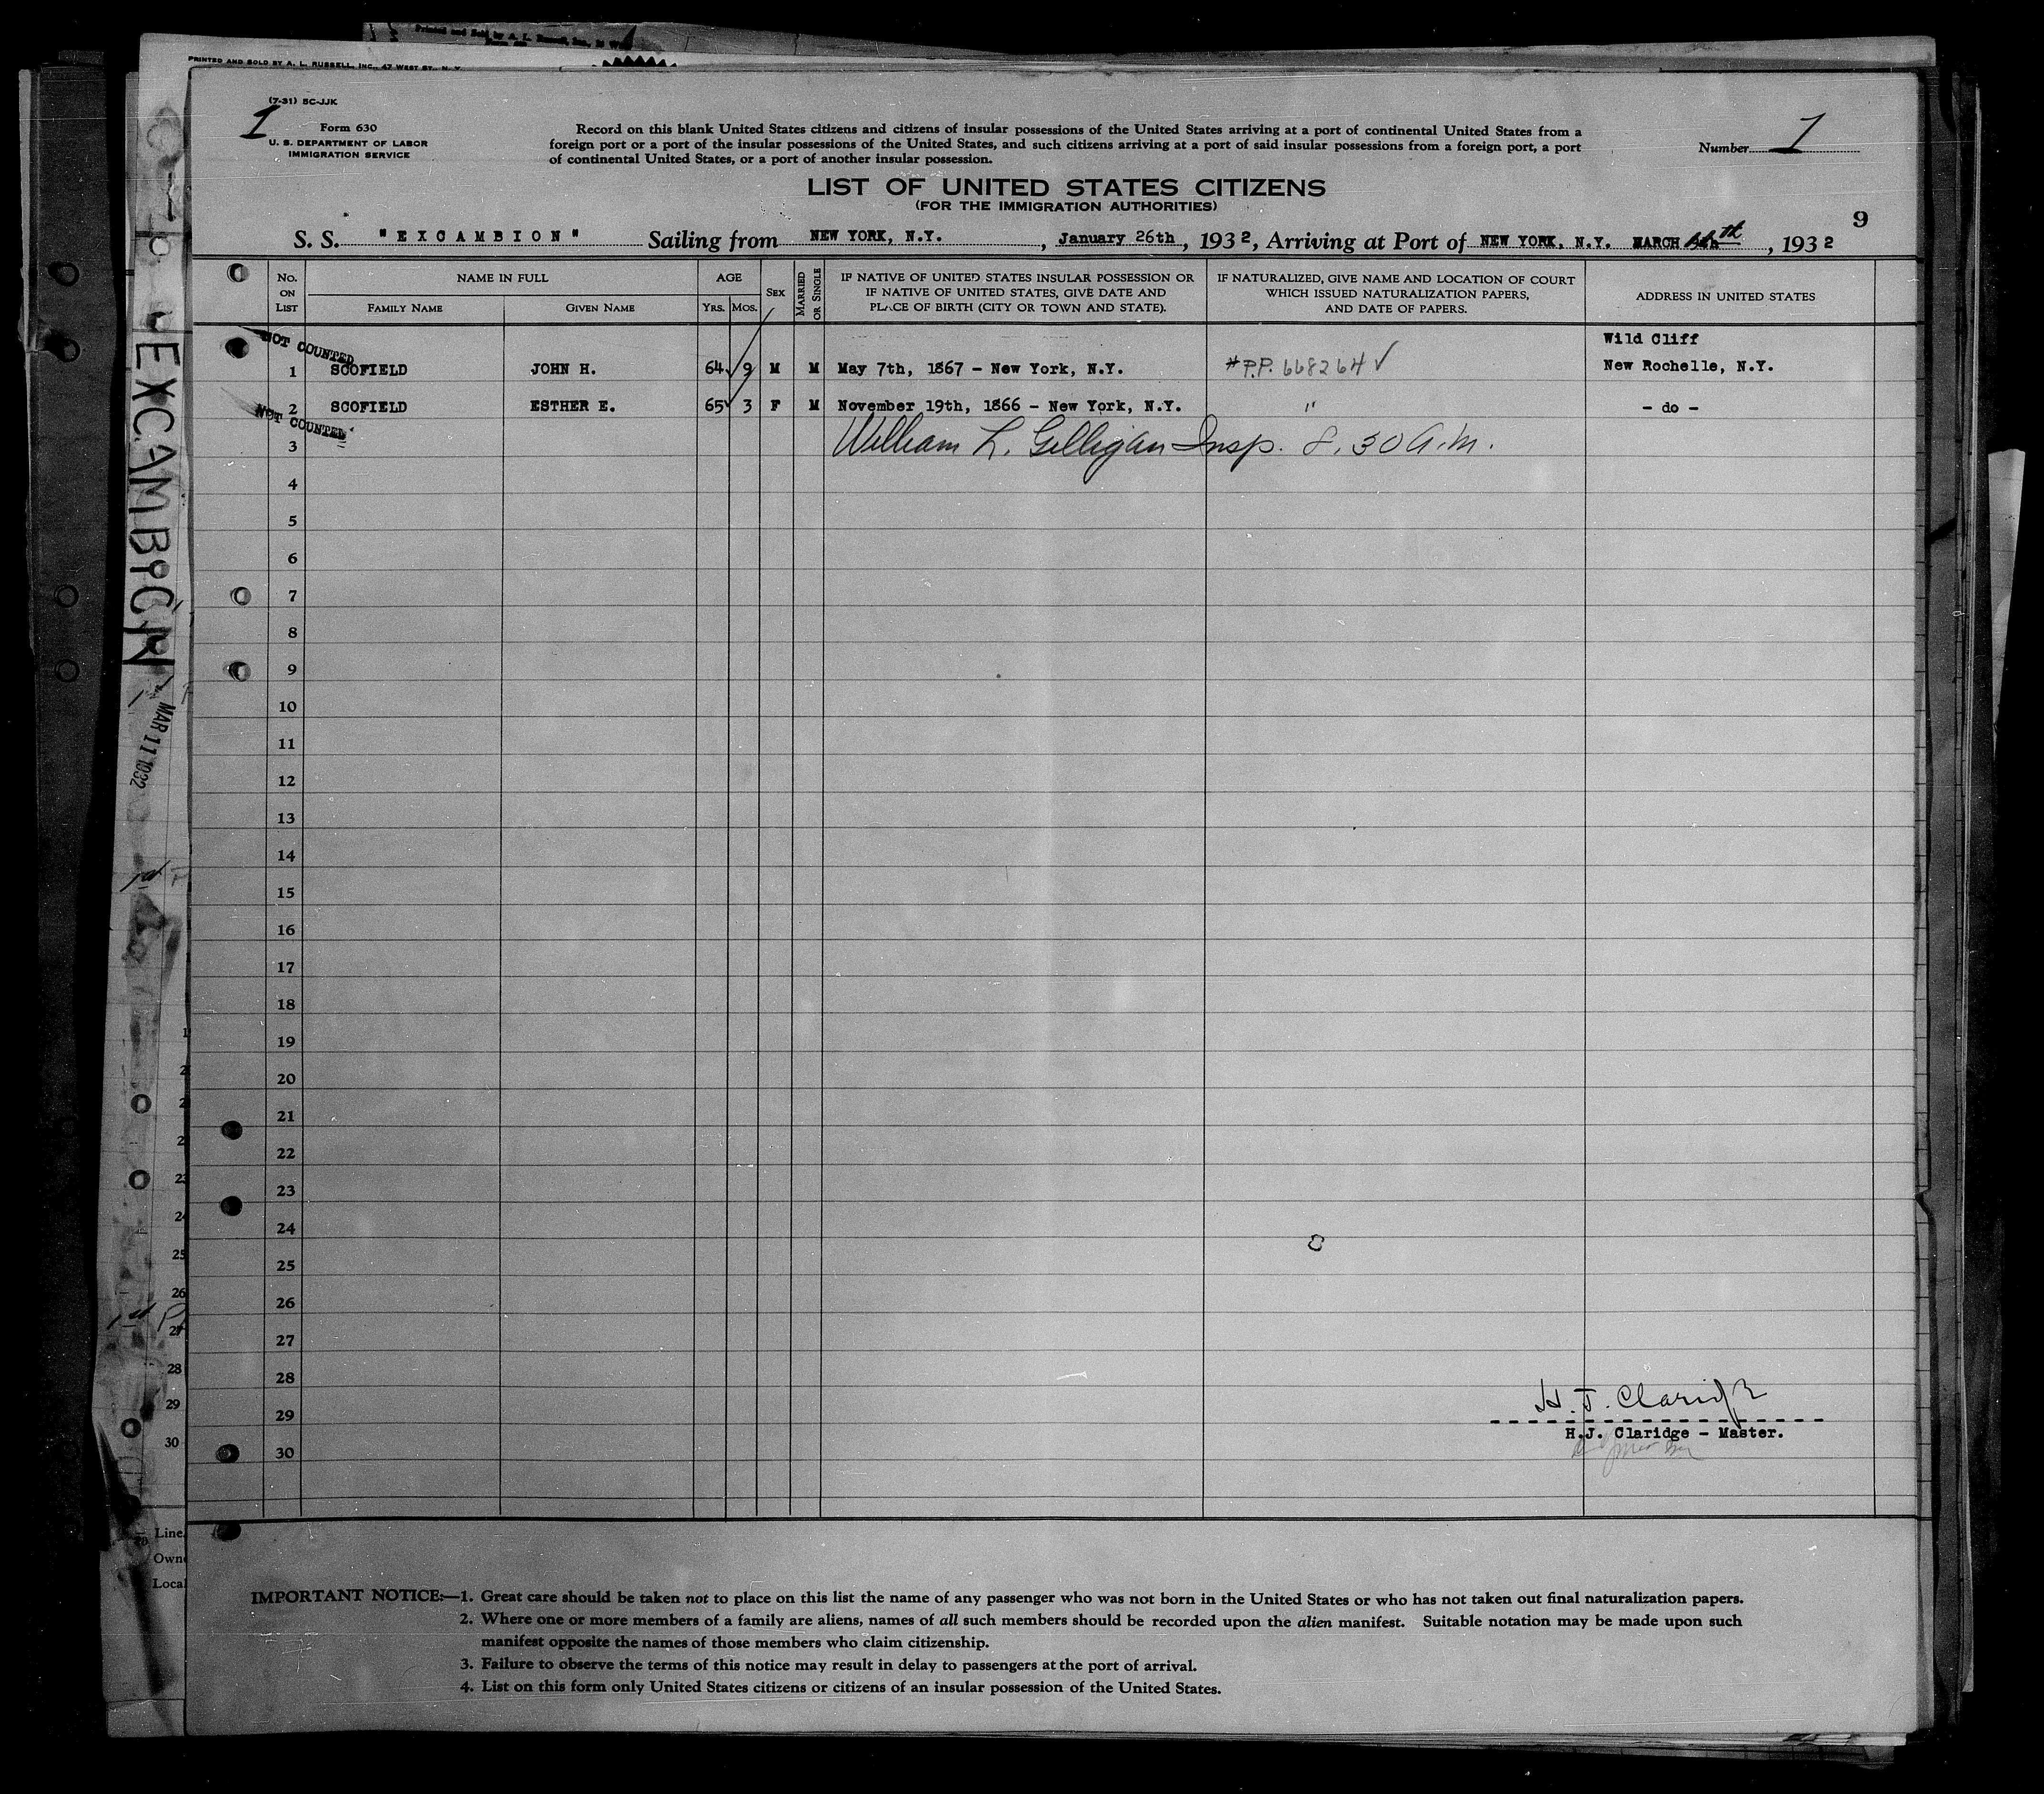 Printed and Sold by A. L. Russell, Inc.,
PRINTED AND SOLD BY A. L. RUSSELL, INC., 47 WEST ST., N. Y.
(7-31) SC-JJK
1
Form 630
U. S. DEPARTMENT OF LABOR
IMMIGRATION SERVICE
Record on this blank United States citizens and citizens of insular possessions of the United States arriving at a port of continental United States from a
foreign port or a port of the insular possessions of the United States, and such citizens arriving at a port of said insular possessions from a foreign port, a port
of continental United States, or a port of another insular possession.
Number 1
LIST OF UNITED STATES CITIZENS
(FOR THE IMMIGRATION AUTHORITIES)
9
S. S. "EXCAMBION" Sailing from NEW YORK, N.Y. , January 26th, 1932, Arriving at Port of NEW YORK, N.Y. MARCH th , 1932
No. ON LIST
NAME IN FULL
FAMILY NAME
GIVEN NAME
AGE
YRS.
MOS.
SEX
MARRIED OR SINGLE
IF NATIVE OF UNITED STATES INSULAR POSSESSION OR
IF NATIVE OF UNITED STATES, GIVE DATE AND
PLACE OF BIRTH (CITY OR TOWN AND STATE).
IF NATURALIZED, GIVE NAME AND LOCATION OF COURT
WHICH ISSUED NATURALIZATION PAPERS,
AND DATE OF PAPERS.
ADDRESS IN UNITED STATES
NOT COUNTED
Wild Cliff
1 SCOFIELD JOHN H. 64 9 M M May 7th, 1867 - New York, N.Y. #P.P. 668264 ✓ New Rochelle, N.Y.
2 SCOFIELD ESTHER E. 65 3 F M November 19th, 1866 - New York, N.Y. " - do -
NOT COUNTED
3 William L. Gilligan Insp. 8.30 A.M.
4
5
6
7
8
9
10
11
12
13
14
15
16
17
18
19
20
21
22
23
24
25
26
27
28
29
30
H. J. Claridge
H.J. Claridge - Master.
EXCAMBION
MAR 11 1932
23
24
25
26
27
28
29
30
Line
Own
Local
IMPORTANT NOTICE:—1. Great care should be taken not to place on this list the name of any passenger who was not born in the United States or who has not taken out final naturalization papers.
2. Where one or more members of a family are aliens, names of all such members should be recorded upon the alien manifest. Suitable notation may be made upon such
manifest opposite the names of those members who claim citizenship.
3. Failure to observe the terms of this notice may result in delay to passengers at the port of arrival.
4. List on this form only United States citizens or citizens of an insular possession of the United States.